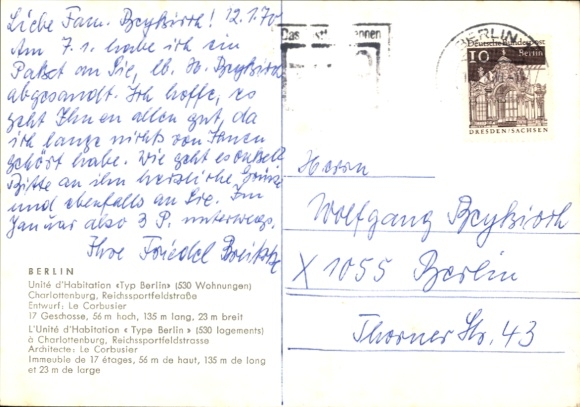 Liebe Fam. Beykirch! 12.1.70
Am 7.1. habe ich ein
Paket an Sie, lb. H. Beykirch
abgesandt. Ich hoffe, es
geht Ihnen allen gut, da
ich lange nichts von Ihnen
gehört habe. Wie geht es
Bitte an ihm herzliche Grüße
und ebenfalls an Sie. Im
Januar also 3 P. unterwegs.
Ihre Friedel
BERLIN
Unité d'Habitation «Typ Berlin» (530 Wohnungen)
Charlottenburg, Reichssportfeldstraße
Entwurf: Le Corbusier
17 Geschosse, 56 m hoch, 135 m lang, 23 m breit
L'Unité d'Habitation « Type Berlin » (530 logements)
à Charlottenburg, Reichssportfeldstrasse
Architecte: Le Corbusier
Immeuble de 17 étages, 56 m de haut, 135 m de long
et 23 m de large
Das
BERLIN
Deutsche Bundespost
10 Berlin
DRESDEN/SACHSEN
Herrn
Wolfgang Beykirch
X 1055 Berlin
Thorner Str. 43